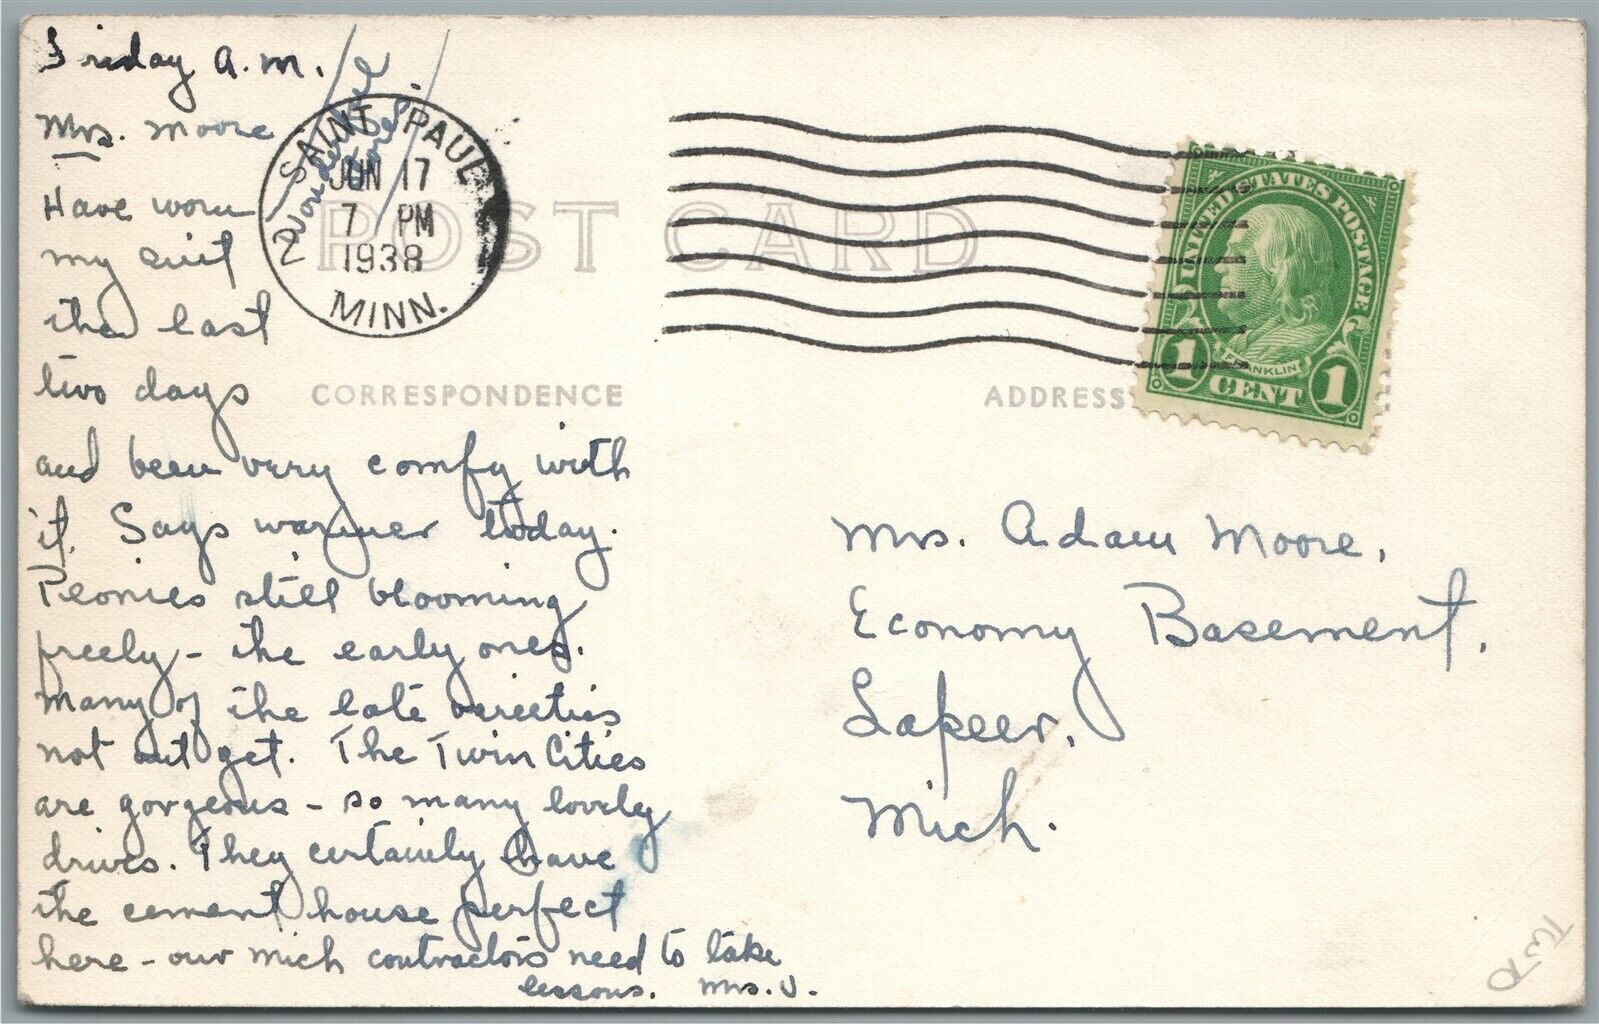 Friday A.M.
Mrs. Moore
Have worn
my suit
the last
two days
and been very comfy with
it. Says warmer today.
Peonies still blooming
freely - the early ones.
Many of the late varieties
not out yet. The Twin Cities
are gorgeous - so many lovely
drives. They certainly have
the cement house perfect
here - our Mich contractors need to take
lessons. Mrs. V.
Wonderful
SAINT PAUL
JUN 17
7 PM
1938
MINN.
POST CARD
CORRESPONDENCE
ADDRESS
UNITED STATES POSTAGE
FRANKLIN
1 CENT 1
Mrs. Adam Moore,
Economy Basement,
Lapeer,
Mich.